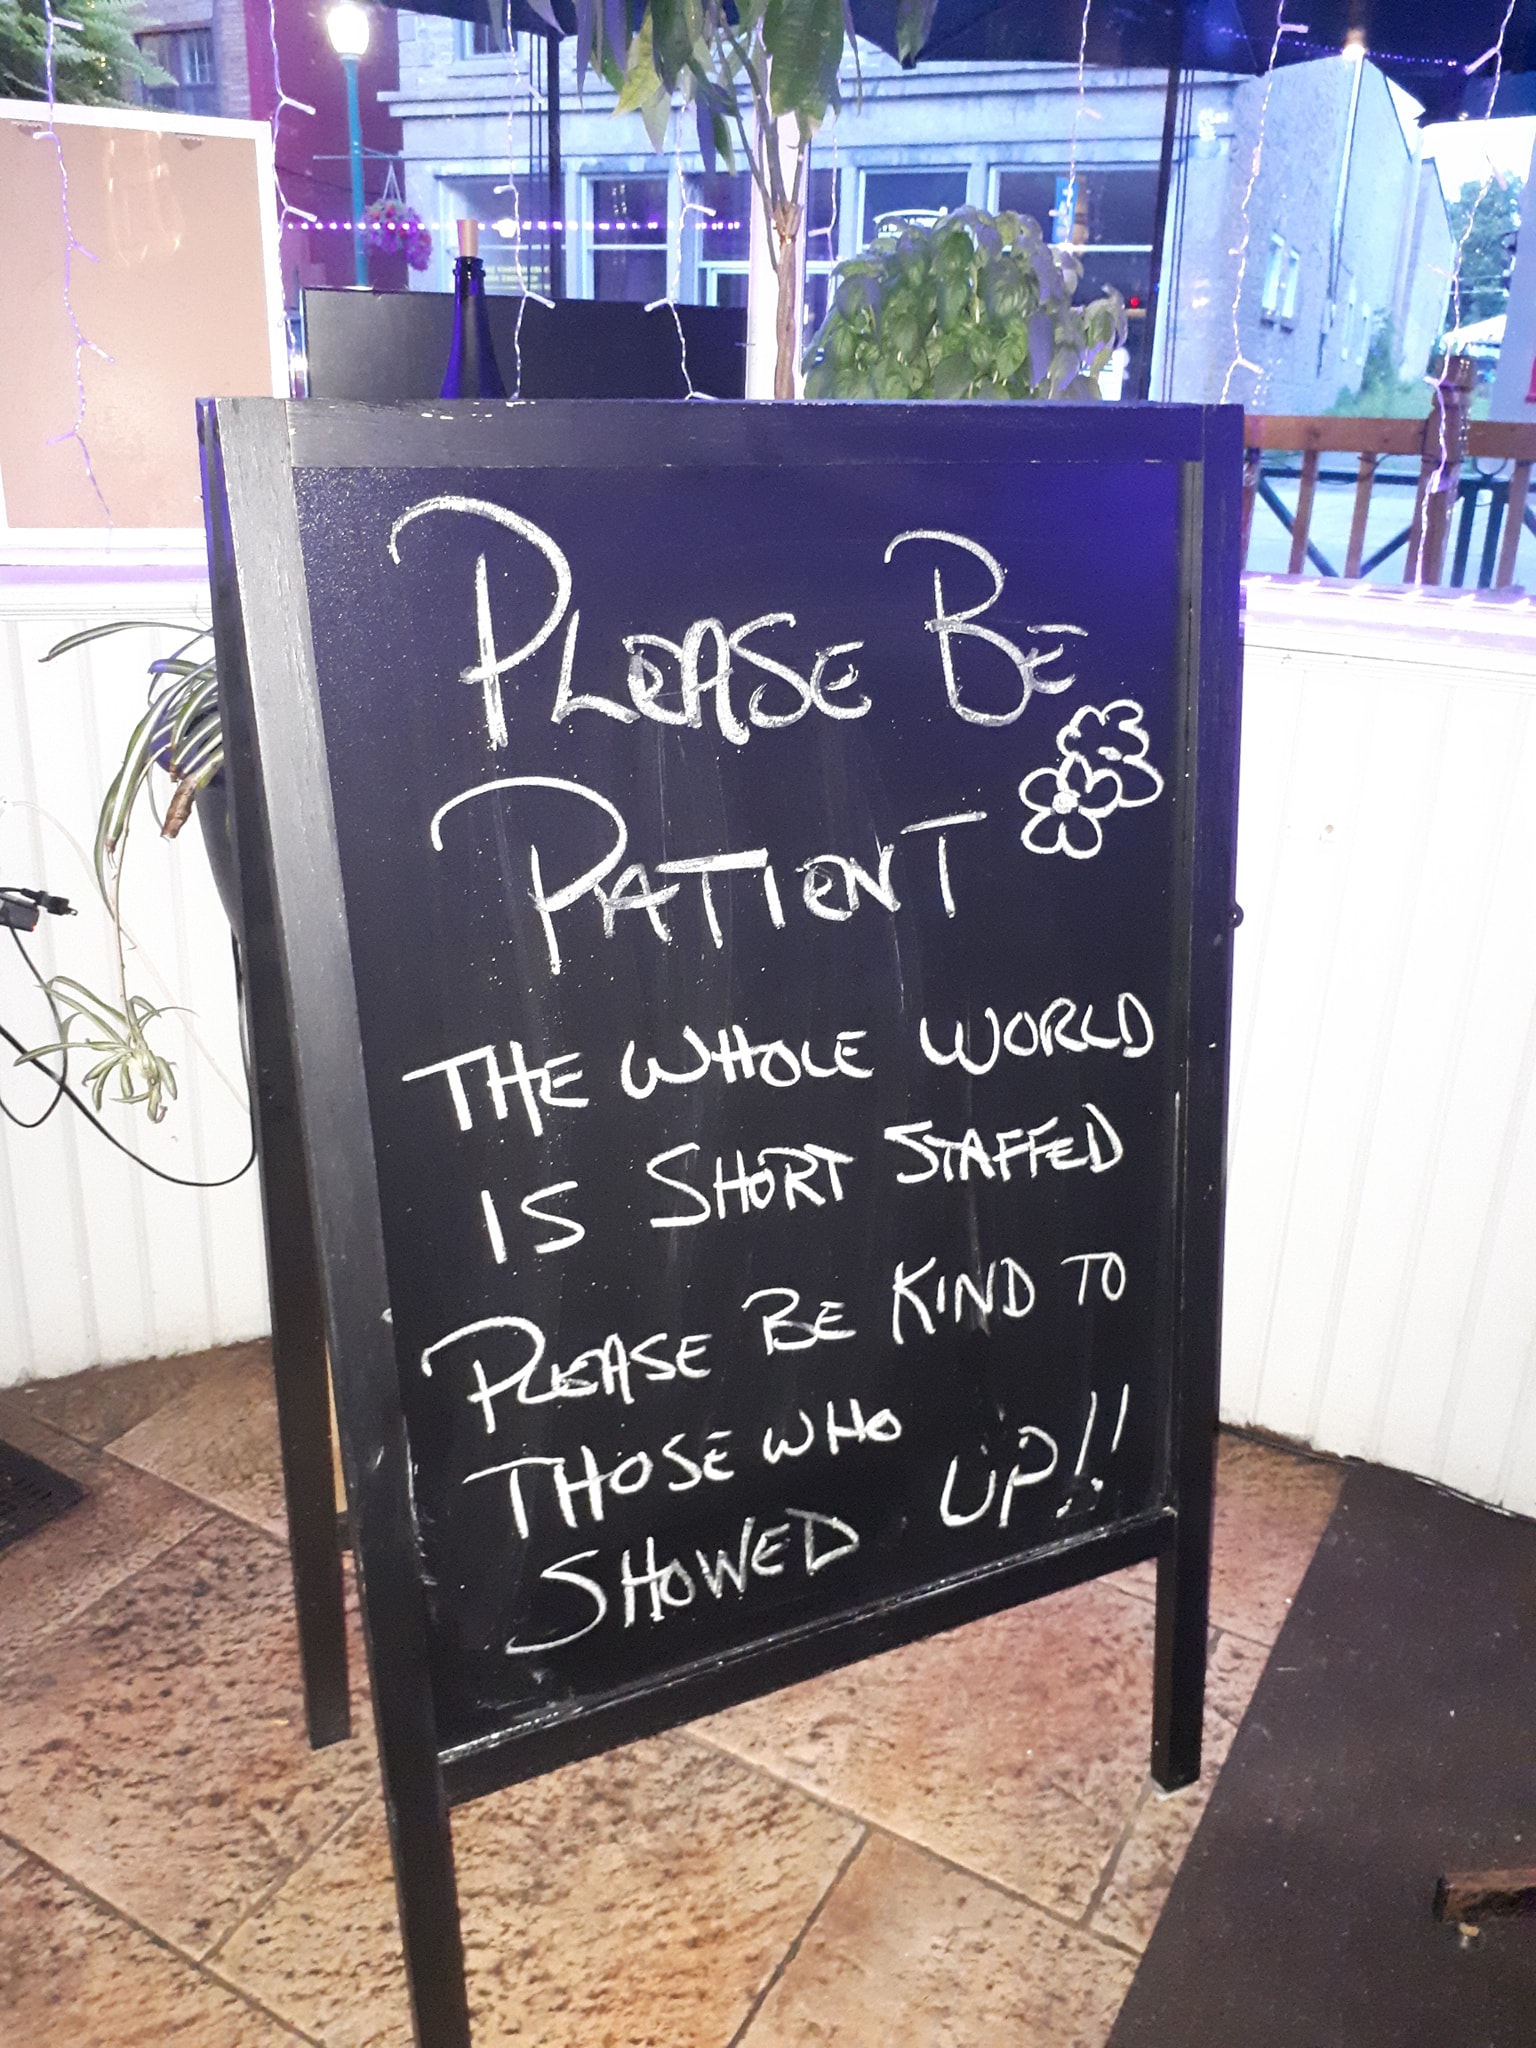 PLEASE BE
PATIENT
THE WHOLE WORLD
IS SHORT STAFFED
PLEASE BE KIND TO
THOSE WHO
SHOWED UP!!